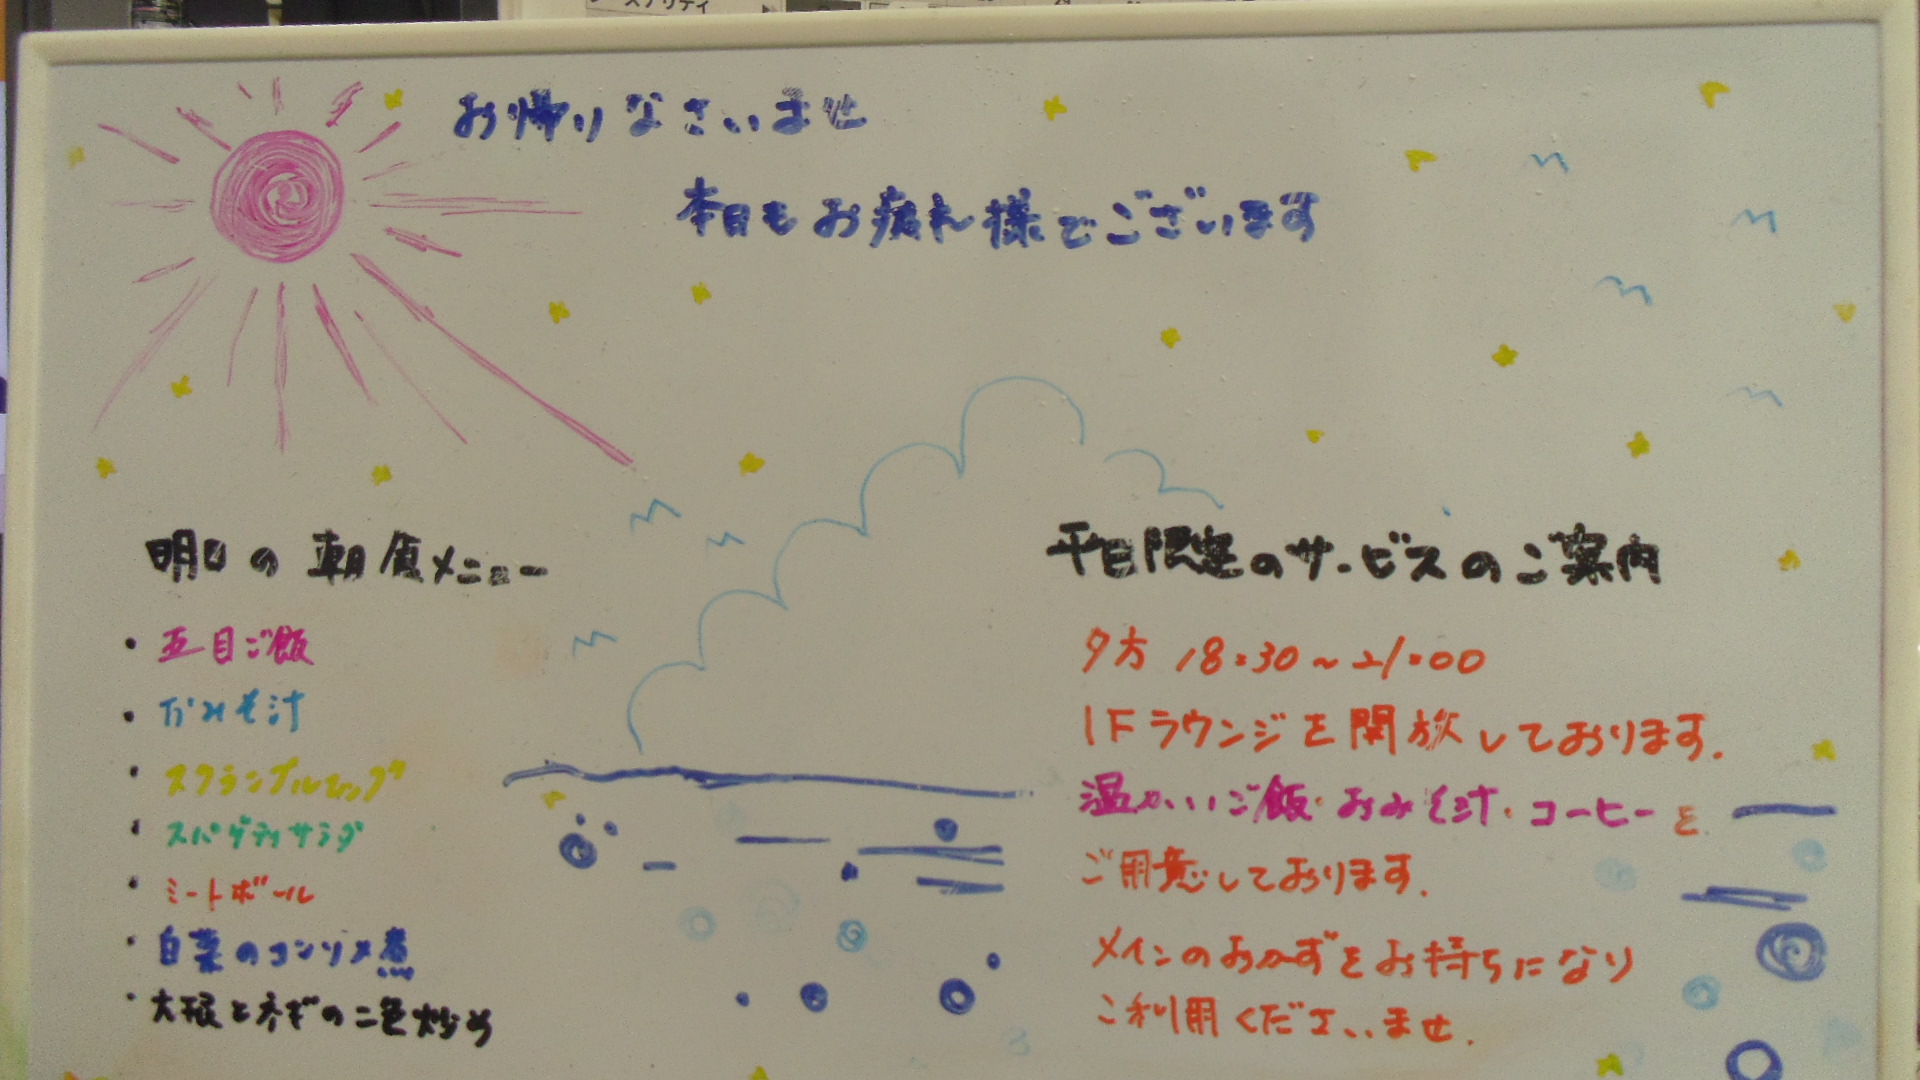 お帰りなさいませ
本日もお疲れ様でございます
明日の朝食メニュー
・五目ご飯
・おみそ汁
・スクランブルエッグ
・スパゲティサラダ
・ミートボール
・白菜のコンソメ煮
・大根とネギの二色炒め
平日限定のサービスのご案内
夕方 18:30~21:00
1Fラウンジを開放しております.
温かいご飯・おみそ汁・コーヒーを
ご用意しております.
メインのおかずをお持ちになり
ご利用くださいませ.